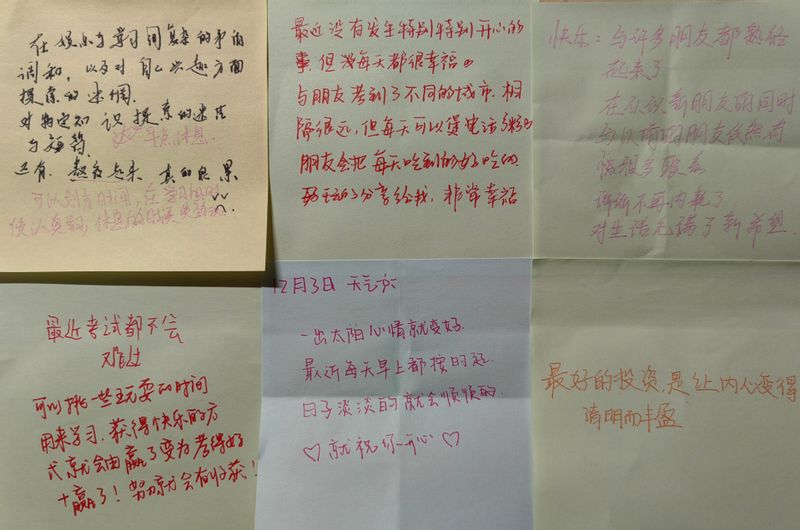 在娱乐与学习间复杂的矛盾的
调和，以及对自己兴趣方面
探索的迷惘。
对特定知识探索的迷茫
与
早点休息
还有，熬夜起来真的很累
可以划分时间，在学习的时
候认真
最近没有发生特别特别开心的
事，但我每天都很幸福。
与朋友考到了不同的城市，相
隔很远，但每天可以煲电话粥
朋友会把每天吃到的好吃的
分享给我，非常幸福
快乐：与许多朋友都熟络
起来了
在认识新朋友的同时
与以前的朋友
渐渐不再内耗了
对生活充满了新希望
最近考试都不会
难过
可以挑一些玩耍的时间
用来学习，获得快乐的方
式就会由赢了变为考得好
+赢了！努力就会有收获！
12月3日 天气
一出太阳心情就变好。
最近每天早上都按时起
日子淡淡的就会顺顺的。
♡就祝你开心♡
最好的投资，是让内心变得
清明而丰盈